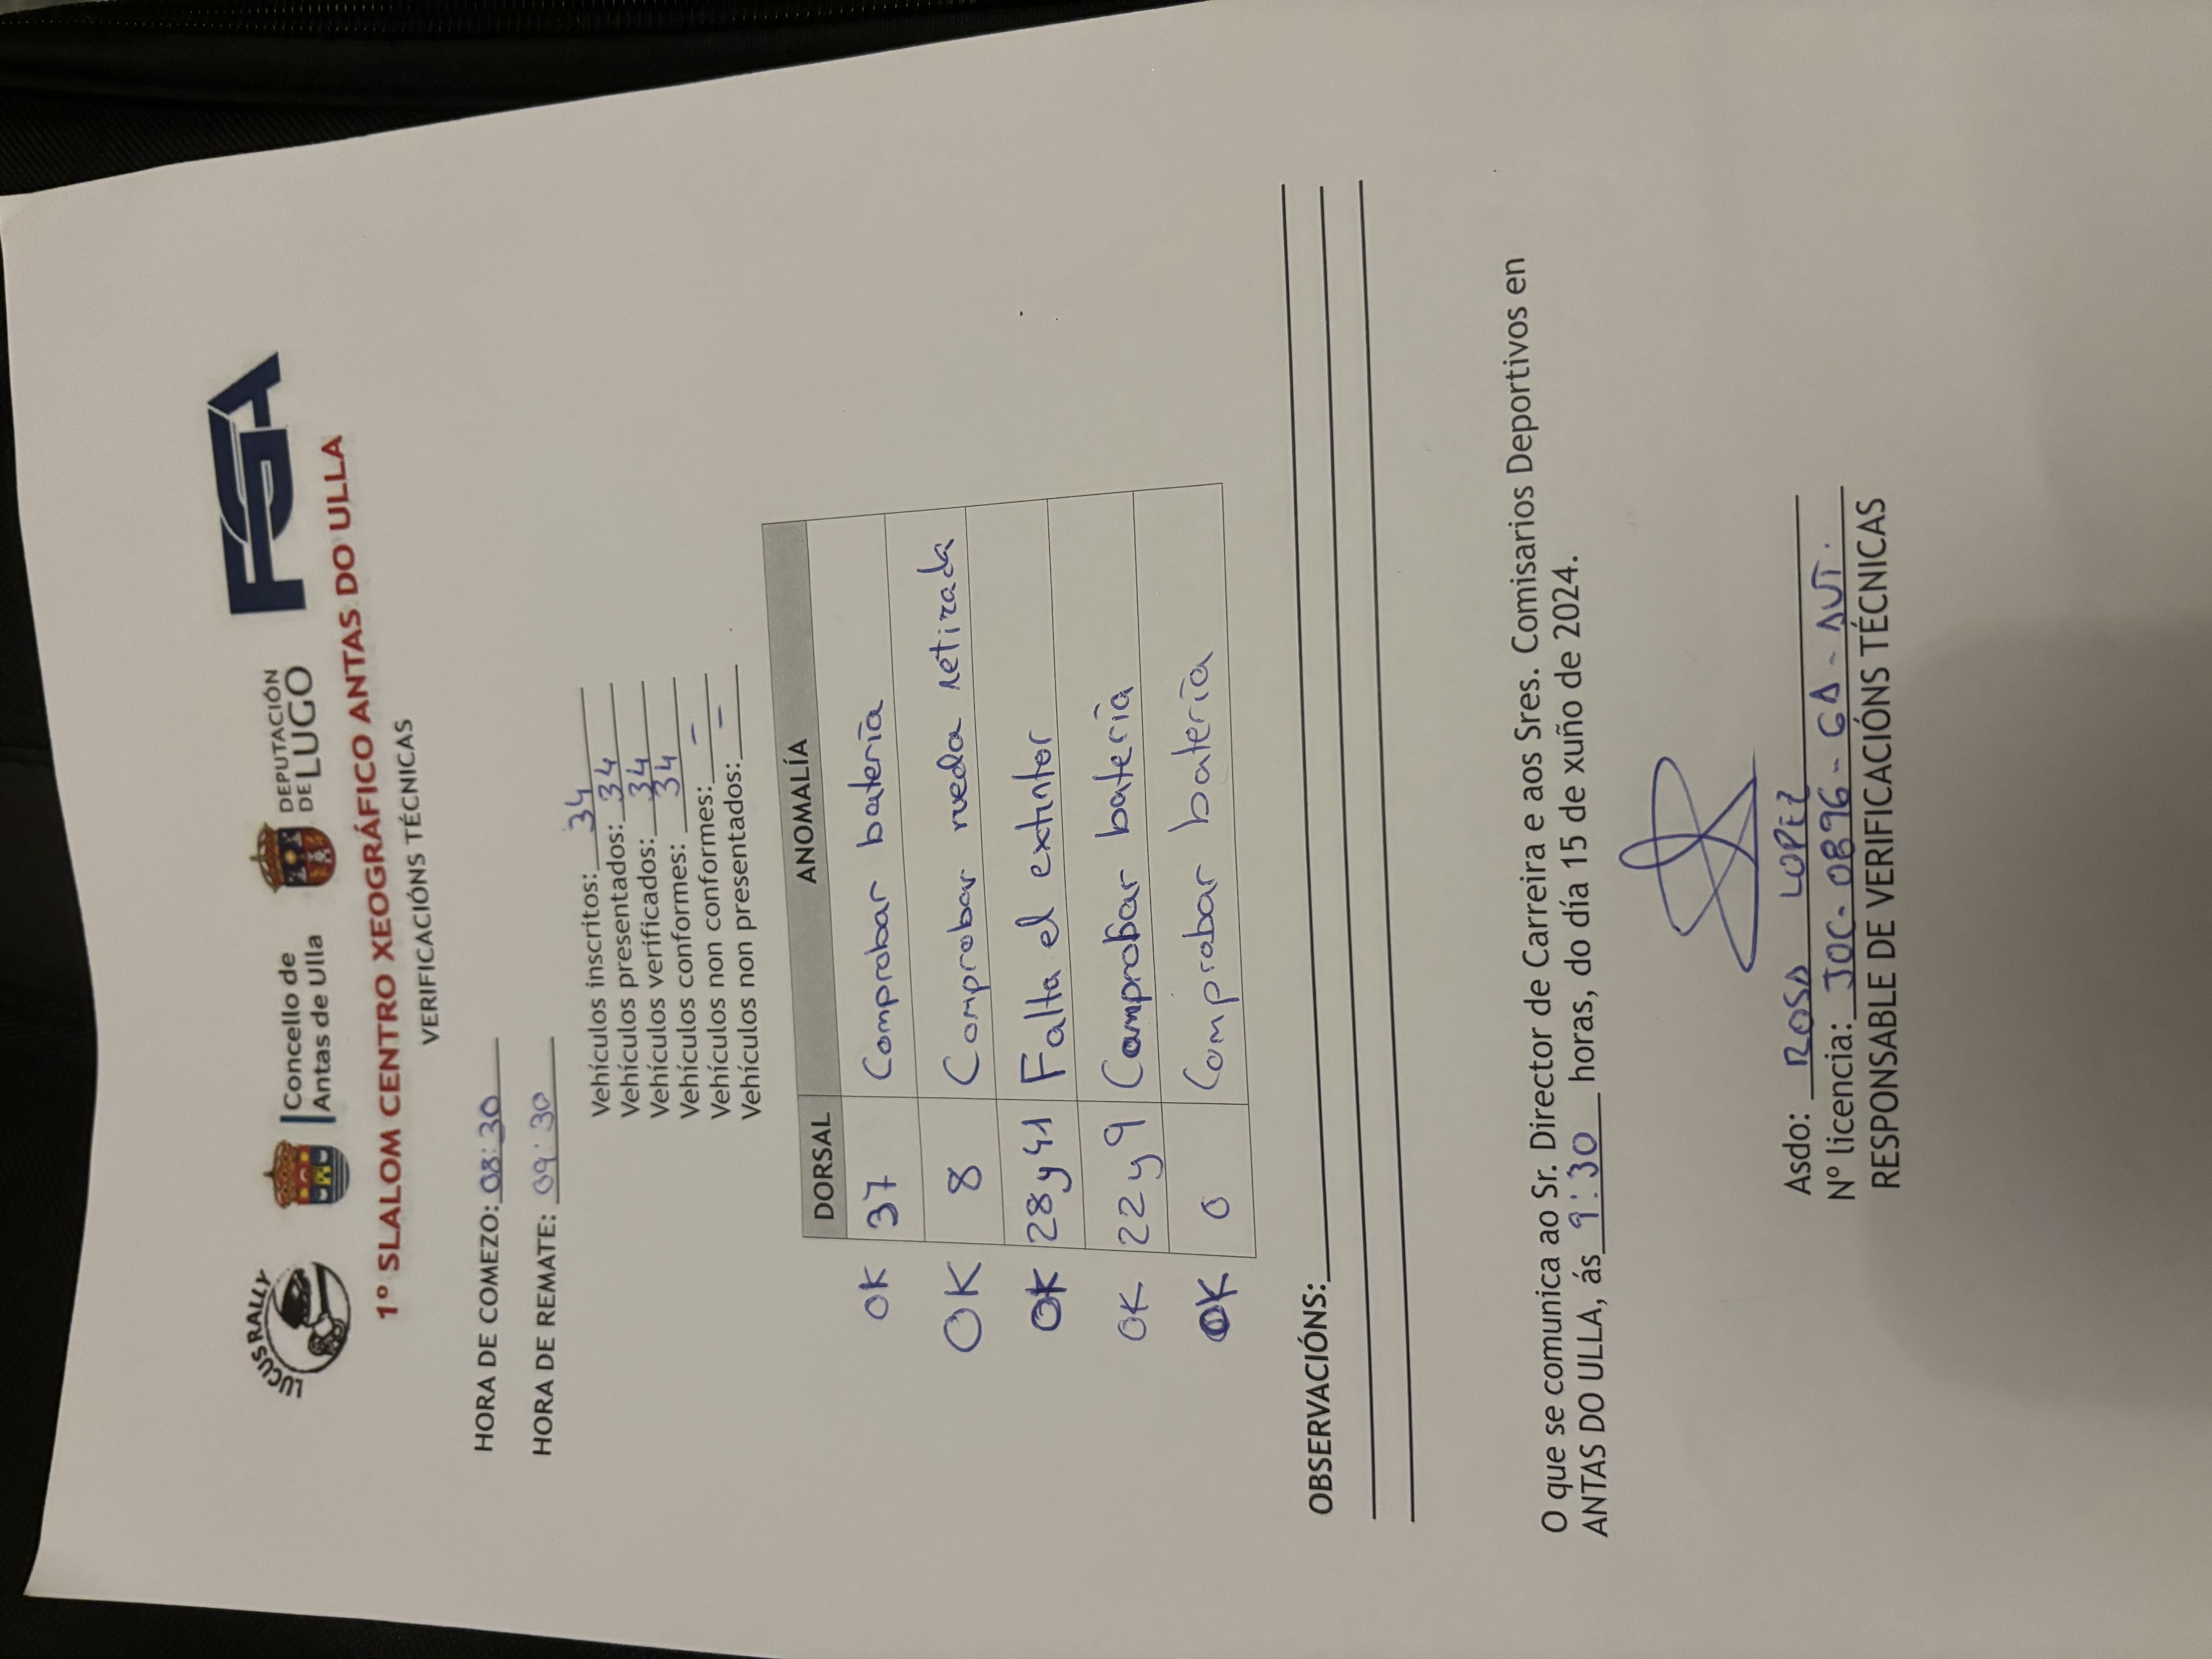 LUCUS RALLY
Concello de
Antas de Ulla
DEPUTACIÓN
DE LUGO
FGA
1º SLALOM CENTRO XEOGRÁFICO ANTAS DO ULLA
VERIFICACIÓNS TÉCNICAS
HORA DE COMEZO: 08:30
HORA DE REMATE: 09:30
Vehículos inscritos: 34
Vehículos presentados: 34
Vehículos verificados: 34
Vehículos conformes: 34
Vehículos non conformes: -
Vehículos non presentados: -
DORSAL ANOMALÍA
OK 37 Comprobar batería
OK 8 Comprobar rueda retirada
OK 28 y 41 Falta el extintor
OK 22 y 9 Comprobar batería
OK 0 Comprobar batería
OBSERVACIÓNS:
O que se comunica ao Sr. Director de Carreira e aos Sres. Comisarios Deportivos en
ANTAS DO ULLA, ás 9:30 horas, do día 15 de xuño de 2024.
Asdo: ROSA LOPEZ
Nº licencia: JOC-0896-GA-AUT.
RESPONSABLE DE VERIFICACIÓNS TÉCNICAS